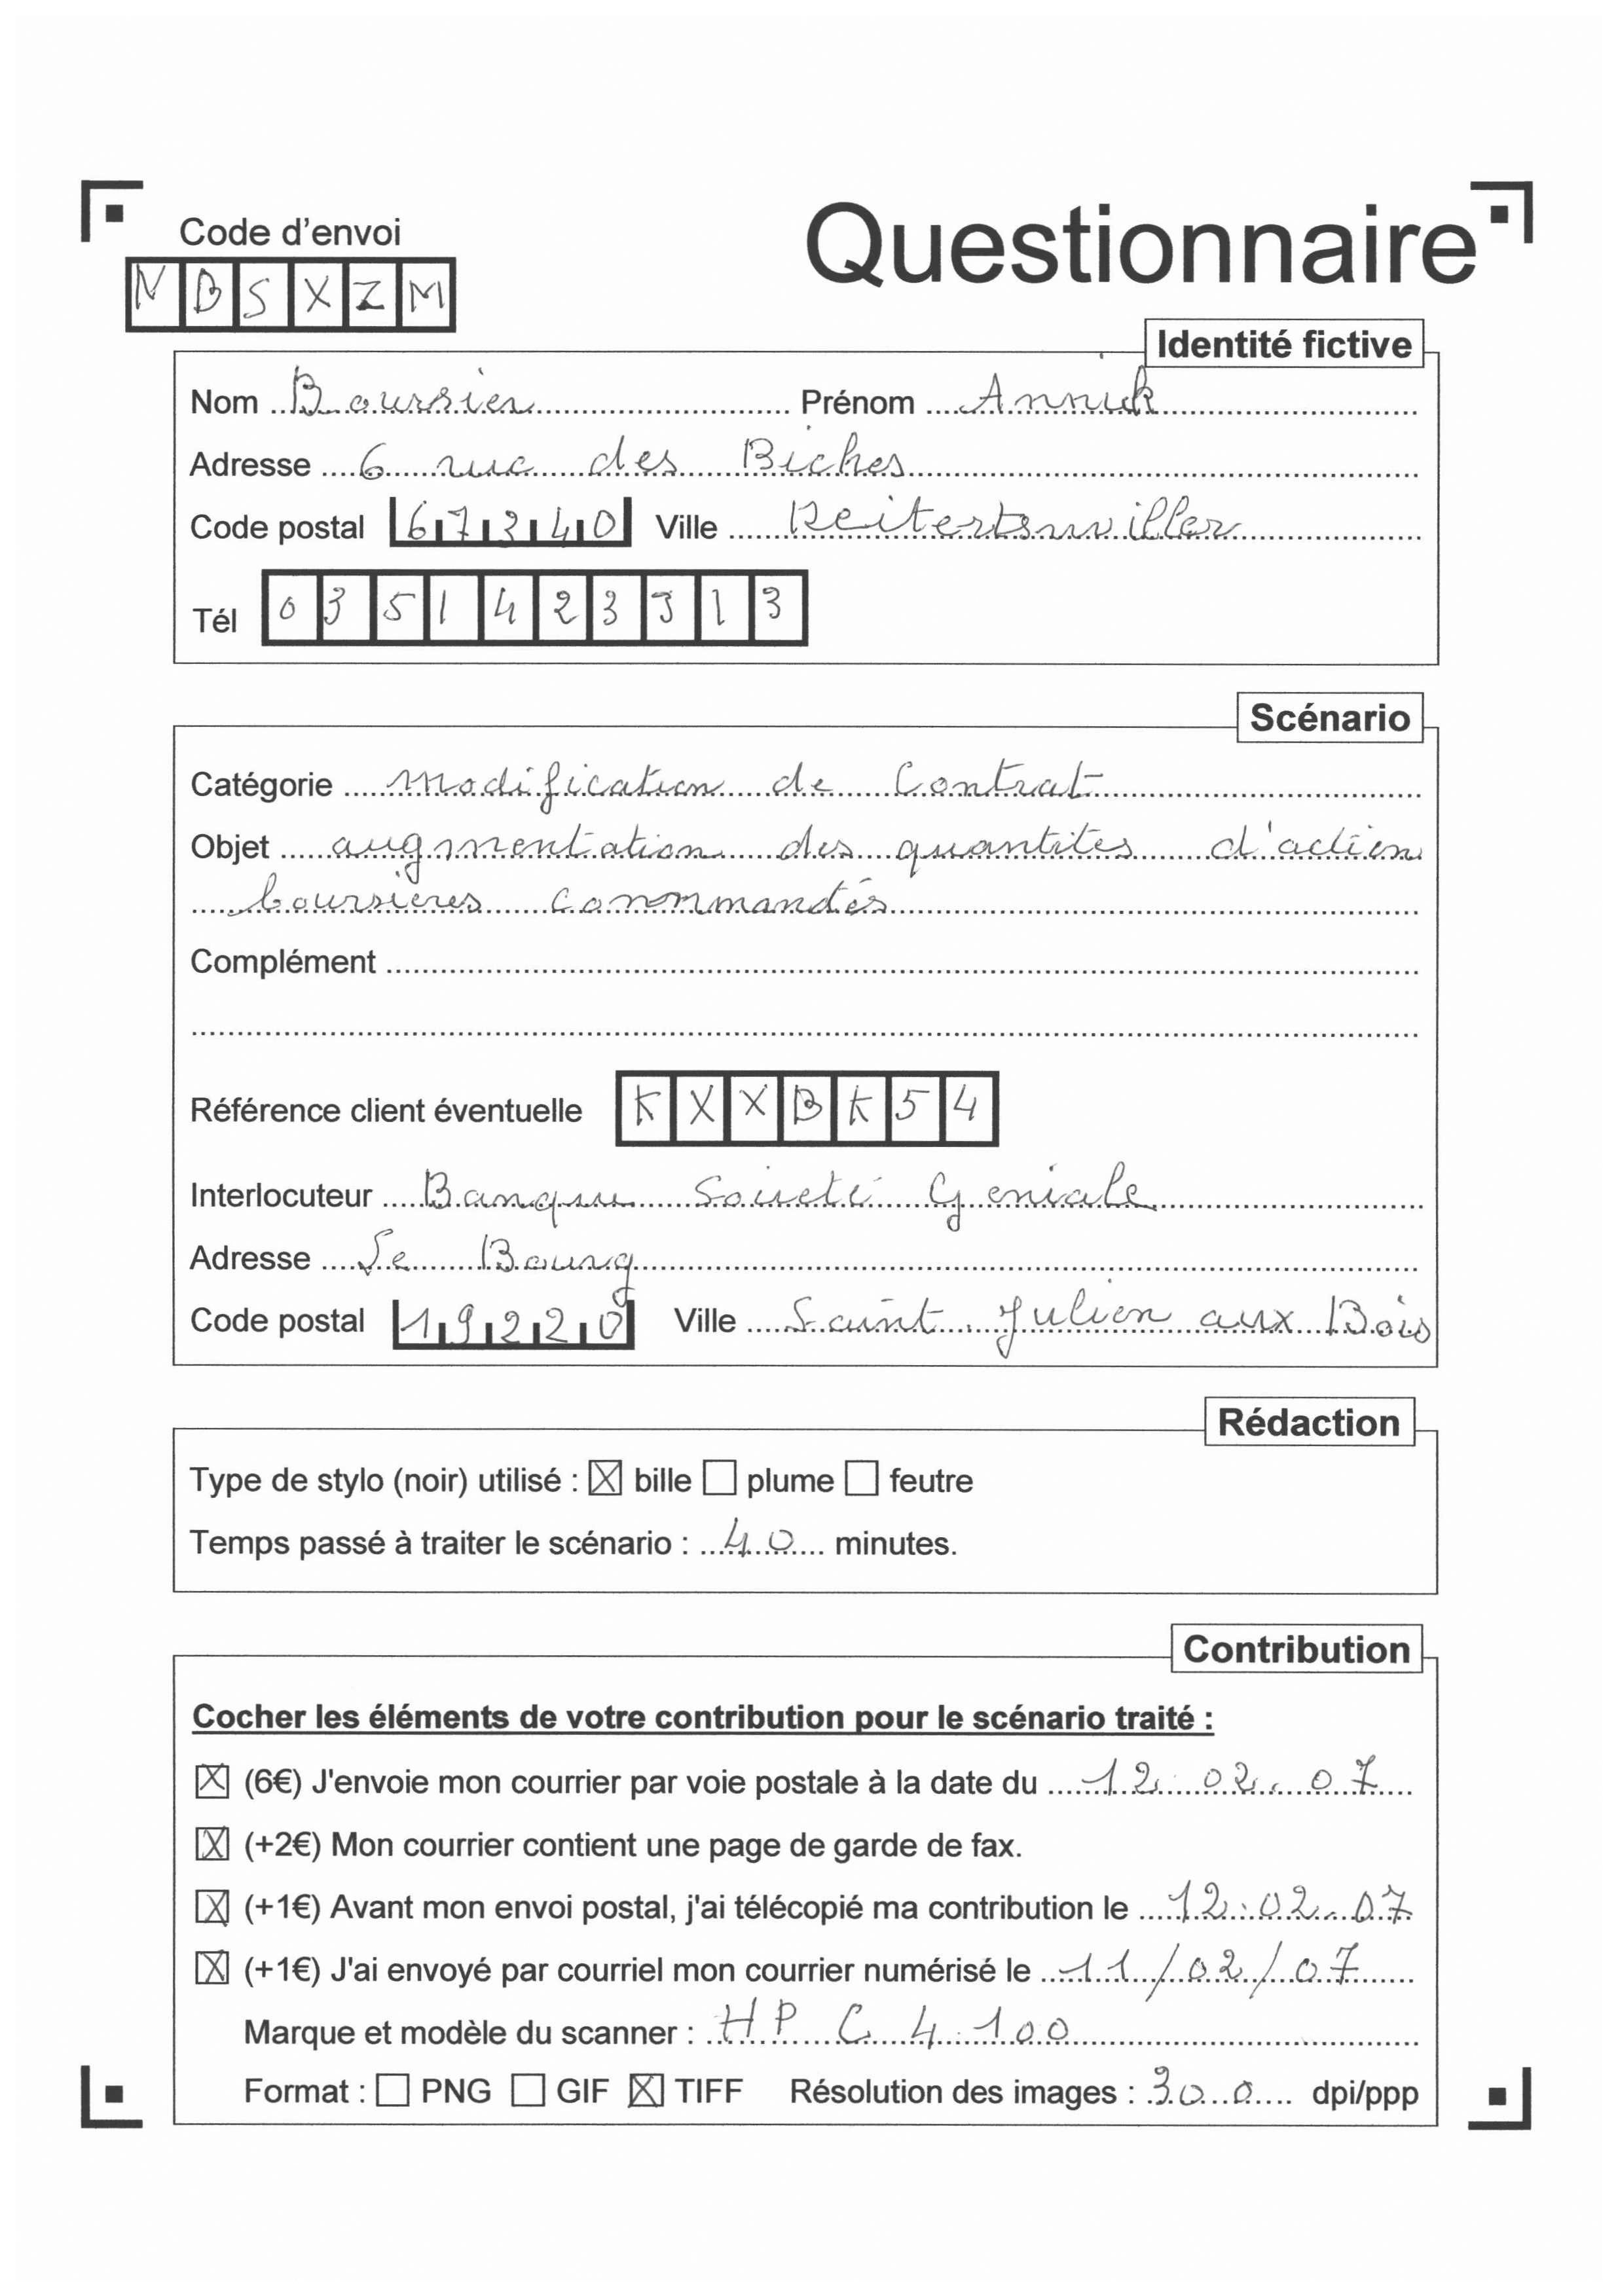 Code d'envoi
Questionnaire
N B S X Z M
Identité fictive
Nom Boursier Prénom Annick
Adresse 6 rue des Biches
Code postal 67340 Ville
Tél 0 3 5 1 4 2 3 3 1 3
Scénario
Catégorie modification de Contrat
Objet augmentation des quantités d'action
boursières commmandés
Complément
Référence client éventuelle K X X B K 5 4
Interlocuteur Banque Société Géniale
Adresse Le Bourg
Code postal 19220 Ville Saint Julien aux Bois
Rédaction
Type de stylo (noir) utilisé : ☒ bille ☐ plume ☐ feutre
Temps passé à traiter le scénario : 40 minutes.
Contribution
Cocher les éléments de votre contribution pour le scénario traité :
☒ (6€) J'envoie mon courrier par voie postale à la date du 12.02.07
☒ (+2€) Mon courrier contient une page de garde de fax.
☒ (+1€) Avant mon envoi postal, j'ai télécopié ma contribution le 12.02.07
☒ (+1€) J'ai envoyé par courriel mon courrier numérisé le 11/02/07
Marque et modèle du scanner : HP C 4100
Format : ☐ PNG ☐ GIF ☒ TIFF Résolution des images : 300 dpi/ppp